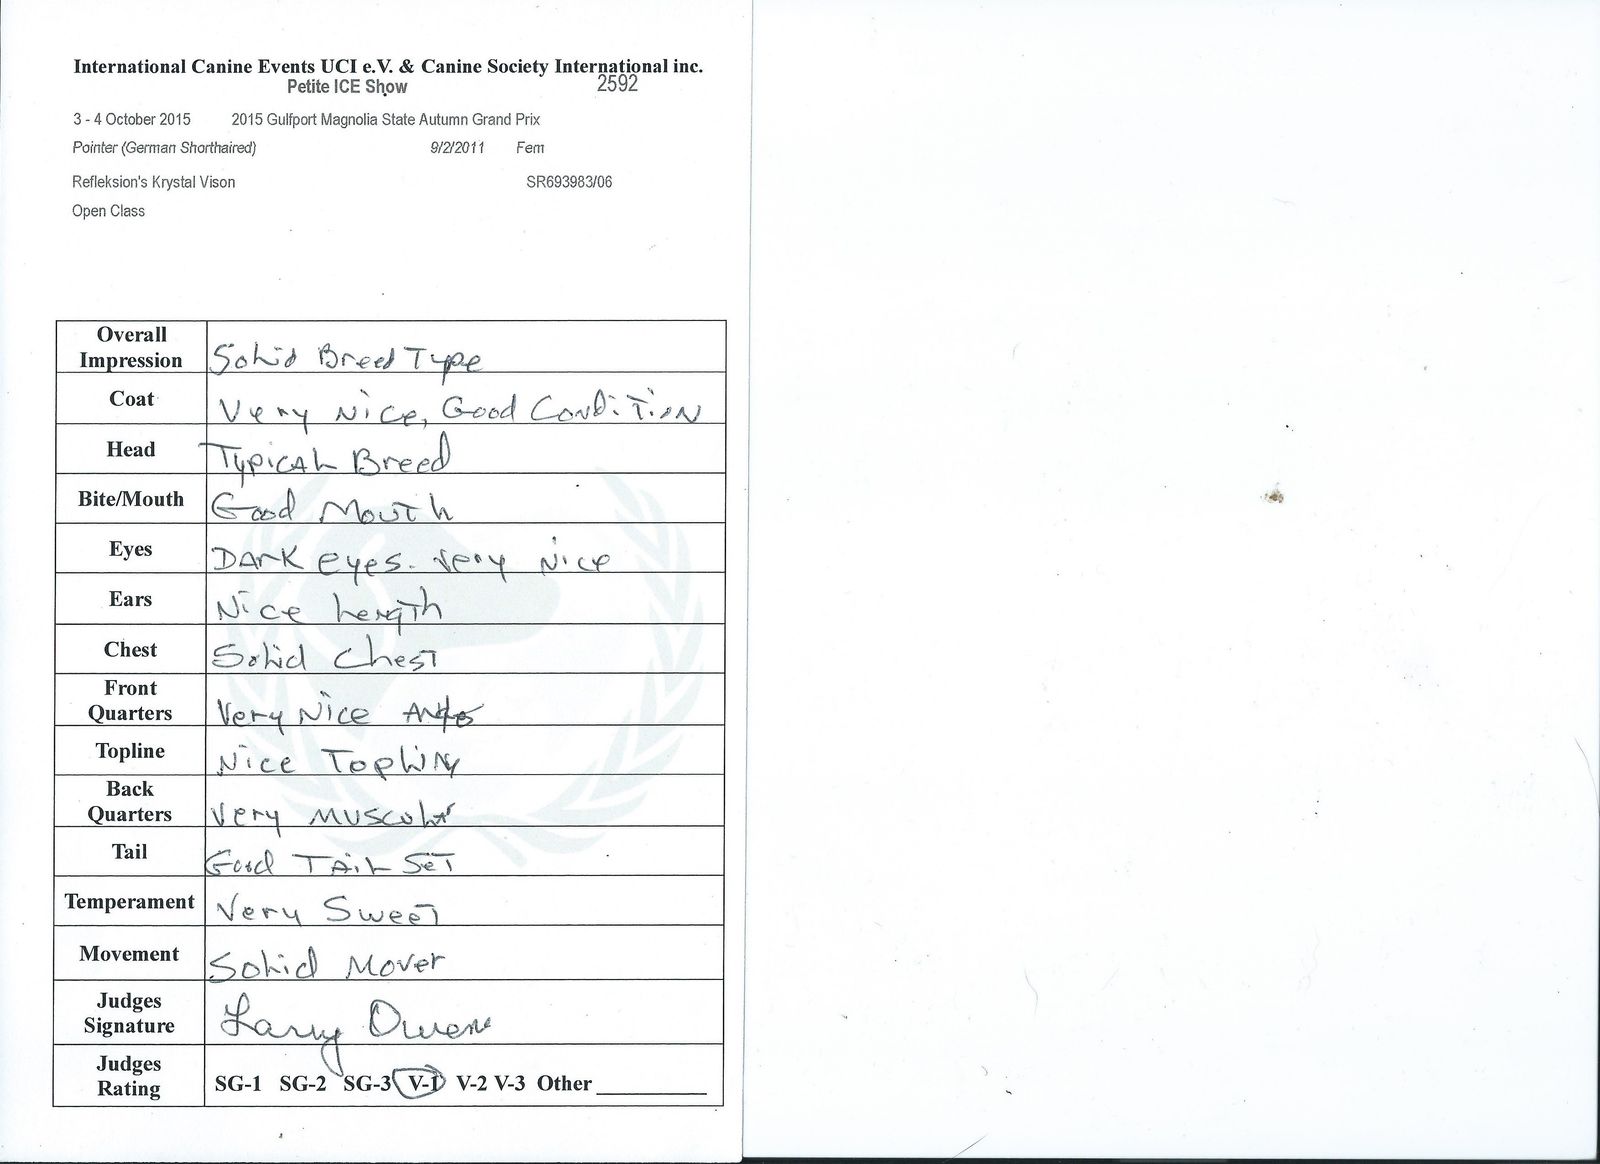 International Canine Events UCI e.V. & Canine Society International inc.
Petite ICE Show 2592
3 - 4 October 2015 2015 Gulfport Magnolia State Autumn Grand Prix
Pointer (German Shorthaired) 9/2/2011 Fem
Refleksion's Krystal Vison SR693983/06
Open Class
Overall Impression Solid Breed Type
Coat Very Nice, Good Condition
Head Typical Breed
Bite/Mouth Good Mouth
Eyes Dark eyes. very Nice
Ears Nice Length
Chest Solid Chest
Front Quarters Very Nice
Topline Nice Topline
Back Quarters Very Muscular
Tail Good Tail Set
Temperament Very Sweet
Movement Solid Mover
Judges Signature Larry Owens
Judges Rating SG-1 SG-2 SG-3 V-1 V-2 V-3 Other